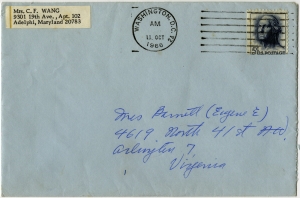 Mrs. C. F. WANG
9301 19th Ave., Apt. 102
Adelphi, Maryland 20783
WASHINGTON, D.C.
AM
OCT
1966
5¢ U.S. POSTAGE
Mrs Barnett (Eugene E)
4619 North 41st
Arlington 7,
Virginia